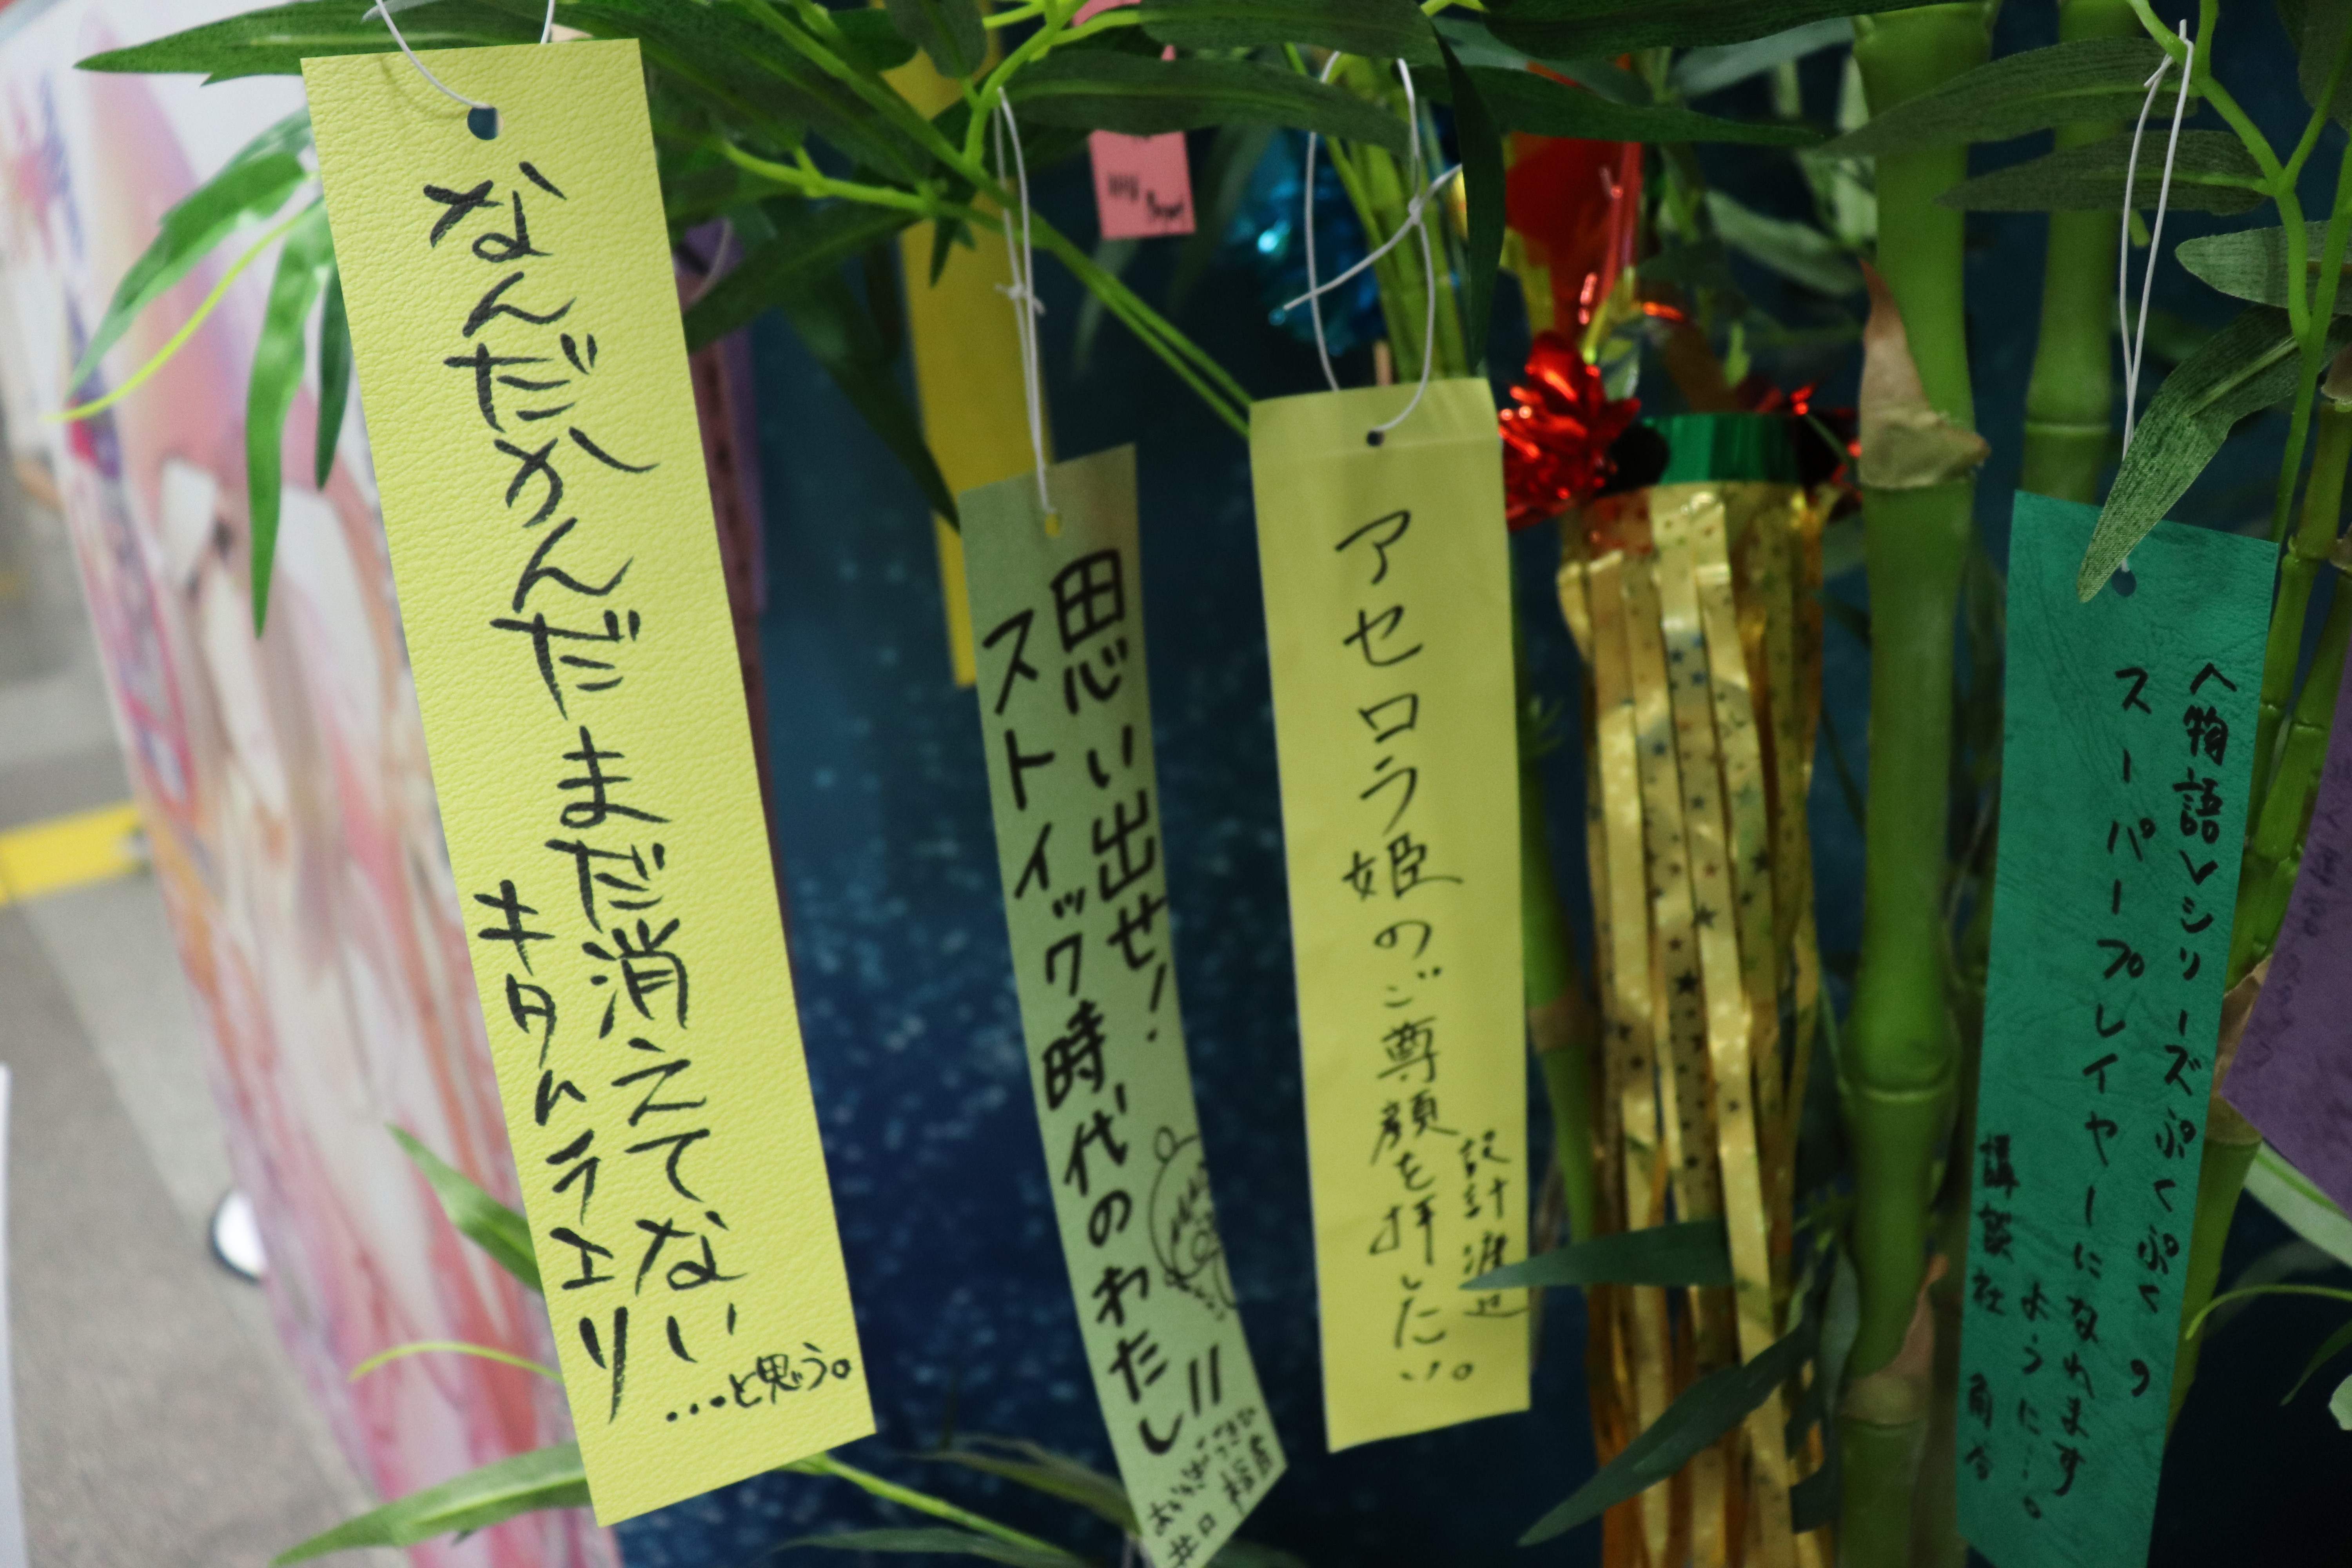 なんだかんだまだ消えてない
…と思う。
キタムラエリ
思い出せ!
ストイック時代のわたし!!
アセロラ姫のご尊顔を拝したい。
設計 渡辺
〈物語〉シリーズぷくぷくの
スーパープレイヤーになれます
ように…。
講談社 角谷